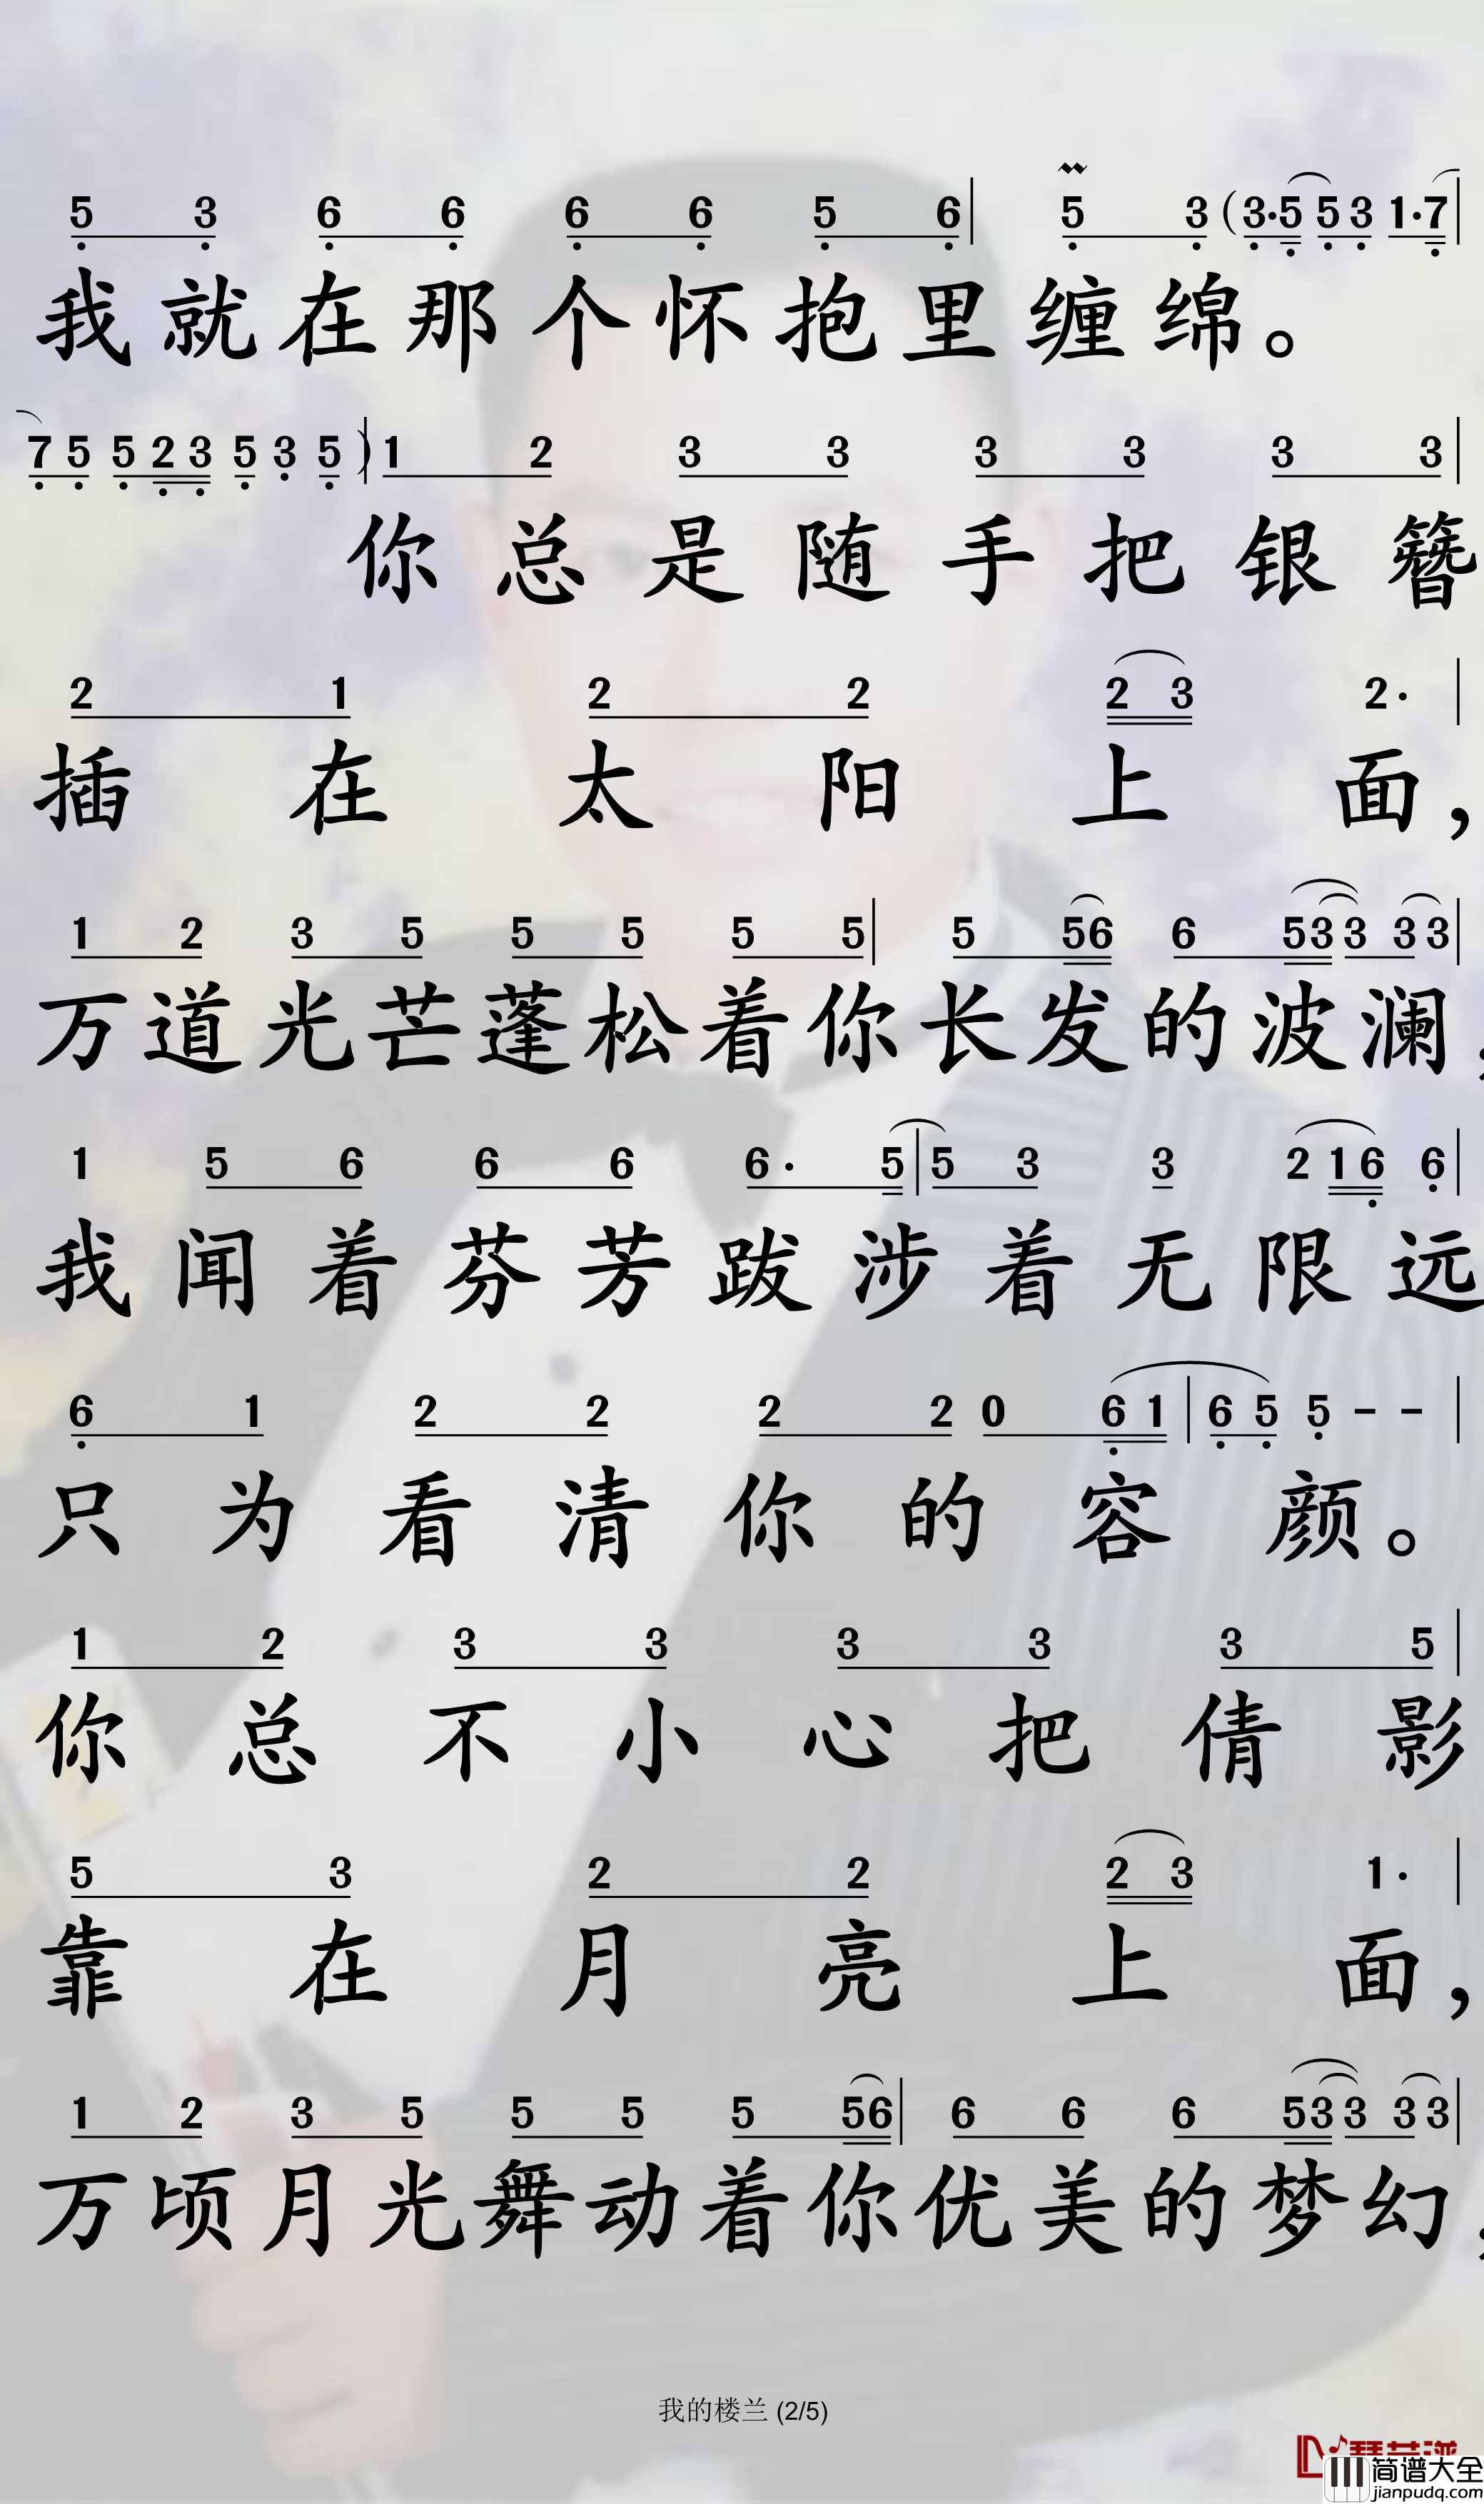 5 3 6 6 6 6 5 6 | 5 3 (3·5 5 3 1·7 |
我就在那个怀抱里缠绵。
7 5 5 2 3 5 3 5 ) | 1 2 3 3 3 3 3 3 |
你总是随手把银簪
2 1 2 2 2 3 2· |
插在太阳上面，
1 2 3 5 5 5 5 5 | 5 56 6 533 33 |
万道光芒蓬松着你长发的波澜，
1 5 6 6 6 6· 5 | 5 3 3 2 1 6 6 |
我闻着芬芳跋涉着无限远
6 1 2 2 2 2 0 6 1 | 6 5 5 - - |
只为看清你的容颜。
1 2 3 3 3 3 3 5 |
你总不小心把倩影
5 3 2 2 2 3 1· |
靠在月亮上面，
1 2 3 5 5 5 5 56 | 6 6 6 533 33 |
万顷月光舞动着你优美的梦幻，
我的楼兰 (2/5)
简谱大全
jianpudq.com